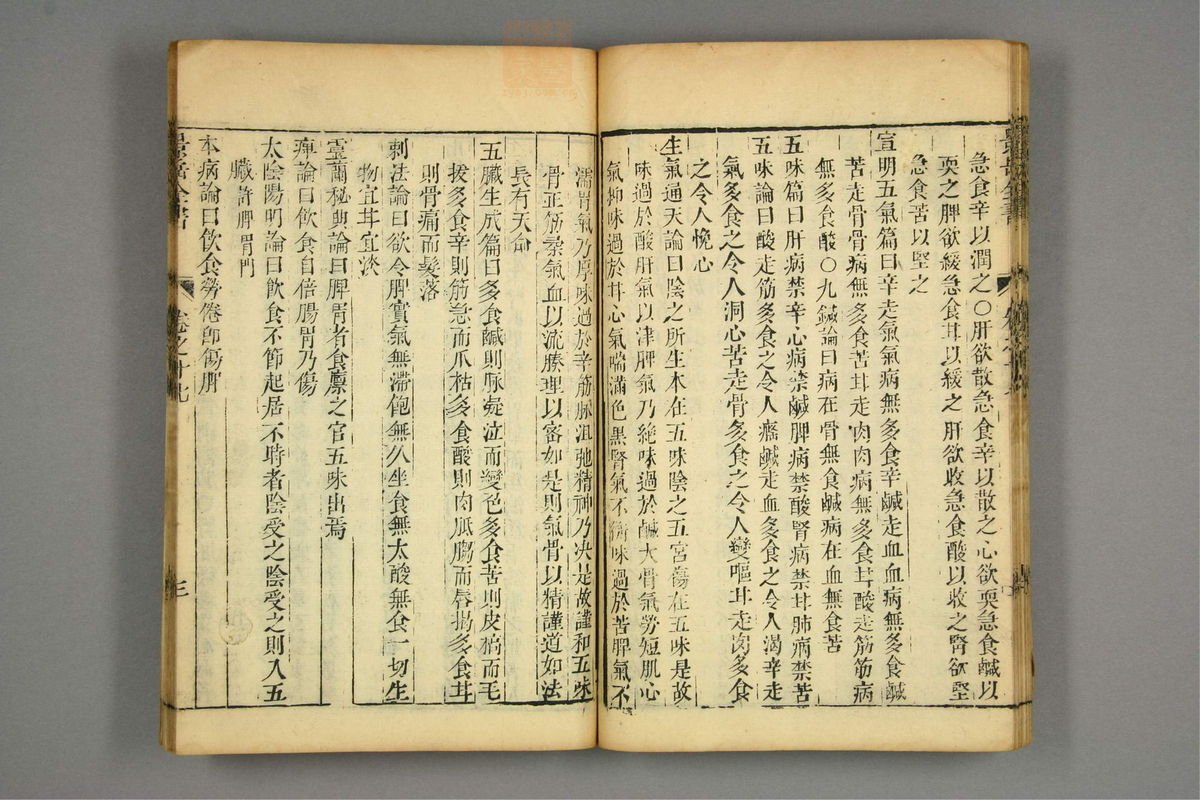 急食辛以潤之○肝欲散急食辛以散之心欲耎急食鹹以
耎之脾欲緩急食甘以緩之肝欲收急食酸以收之腎欲堅
急食苦以堅之
宣明五氣篇曰辛走氣氣病無多食辛鹹走血血病無多食鹹
苦走骨骨病無多食苦甘走肉肉病無多食甘酸走筋筋病
無多食酸○九鍼論曰病在骨無食鹹病在血無食苦
五味篇曰肝病禁辛心病禁鹹脾病禁酸腎病禁甘肺病禁苦
五味論曰酸走筋多食之令人癃鹹走血多食之令人渴辛走
氣多食之令人洞心苦走骨多食之令人變嘔甘走肉多食
之令人悗心
生氣通天論曰陰之所生本在五味陰之五宮傷在五味是故
味過於酸肝氣以津脾氣乃絶味過於鹹大骨氣勞短肌心
氣抑味過於甘心氣喘滿色黑腎氣不衡味過於苦脾氣不
濡胃氣乃厚味過於辛筋脉沮弛精神乃央是故謹和五味
骨正筋柔氣血以流腠理以密如是則氣骨以精謹道如法
長有天命
五臟生成篇曰多食鹹則脉凝泣而變色多食苦則皮槁而毛
拔多食辛則筋急而爪枯多食酸則肉胝䐢而唇揭多食甘
則骨痛而髮落
刺法論曰欲令脾實氣無滯飽無久坐食無太酸無食一切生
物宜甘宜淡
靈蘭秘典論曰脾胃者倉廩之官五味出焉
痺論曰飲食自倍腸胃乃傷
太陰陽明論曰飲食不節起居不時者陰受之陰受之則入五
臟許脾胃門
本病論曰飲食勞倦即傷脾
景岳全書 卷之十九 三